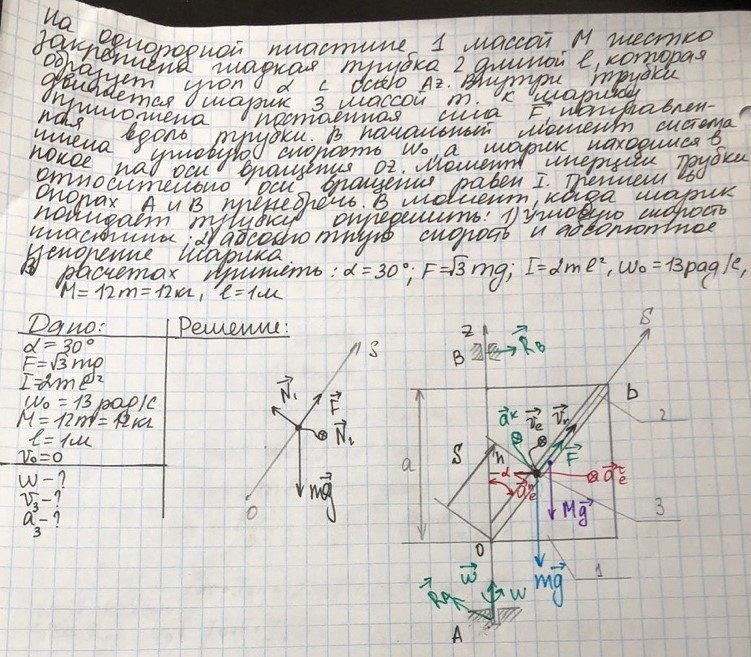 На однородной пластине 1 массой М жестко
закреплена гладкая трубка 2 длиной l, которая
образует угол α с осью Az. Внутри трубки
движется шарик 3 массой m. К шарику
приложена постоянная сила F, направлен-
ная вдоль трубки. В начальный момент система
имела угловую скорость ω₀, а шарик находился в
покое на оси вращения Oz. Момент инерции трубки
относительно оси вращения равен I. Трением в
опорах А и В пренебречь. В момент, когда шарик
покидает трубку определить: 1) угловую скорость
пластины; 2) абсолютную скорость и абсолютное
ускорение шарика.
В расчетах принять: α=30°; F=√3mg; I=2ml², ω₀=13рад/с,
M=12m=12кг, l=1м
Дано:
α=30°
F=√3mg
I=2ml²
ω₀=13рад/с
M=12m=12кг
l=1м
v₀=0
ω-?
v₃-?
a₃-?
Решение:
S
N₁
F
N₂
mg
O
z
B
R_B
S
b
2
a
S
h
α
aᵏ
v_e
v_r
F
aₑⁿ
aₑ^τ
Mg
3
O
mg
1
ω
ω
R_A
A